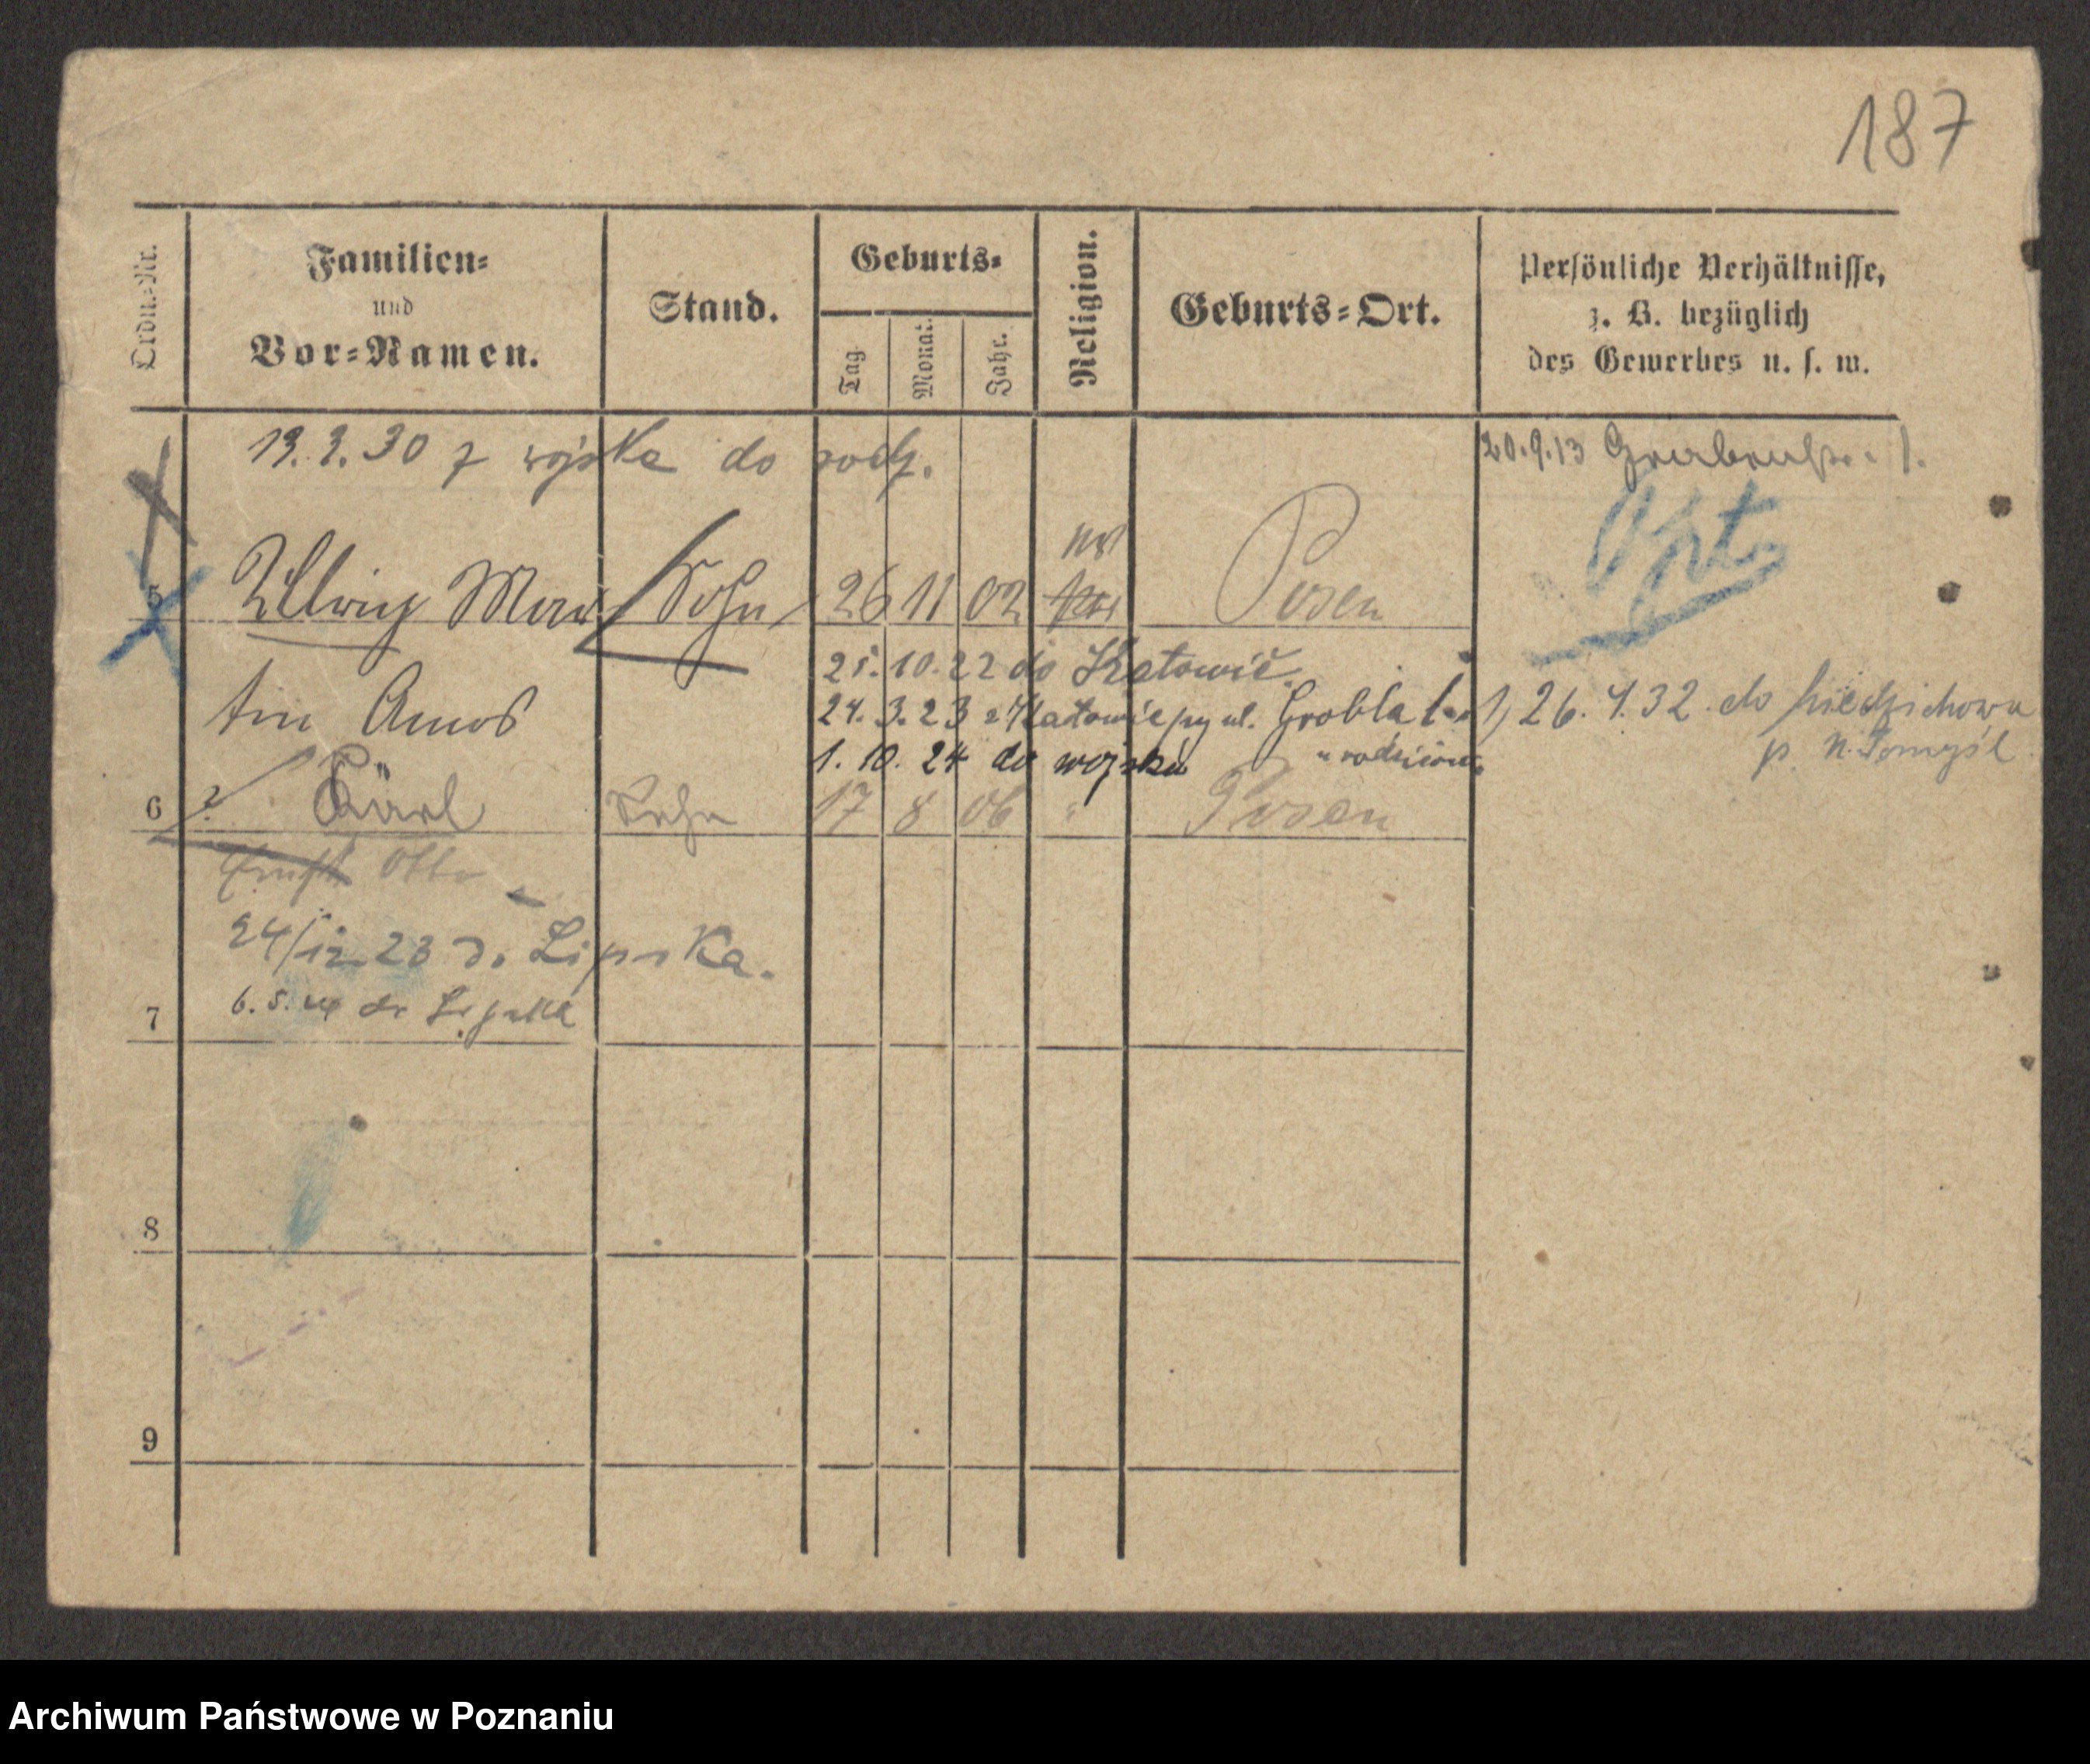 187
Ordn.-Nr.
Familien-
und
Vor-Namen.
Stand.
Geburts-
Tag
Monat.
Jahr.
Religion.
Geburts-Ort.
Persönliche Verhältnisse,
z. B. bezüglich
des Gewerbes u. s. w.
19.3.30 z wojska do rodz.
20.9.13 Grabenstr. 1.
5 Mar Sohn 26 11 02 Posen
tin Amos
25.10.22 do Katowic
24.3.23 z Katowic ul. Grobla 1
1.10.24 do wojska
26.4.32 do
p. N. Tomyśl
6 Karl Sohn 17 8 06 " Posen
Ernst Otto
24/12 23 do Lipska.
7 6.5. do Lipska
8
9
Archiwum Państwowe w Poznaniu